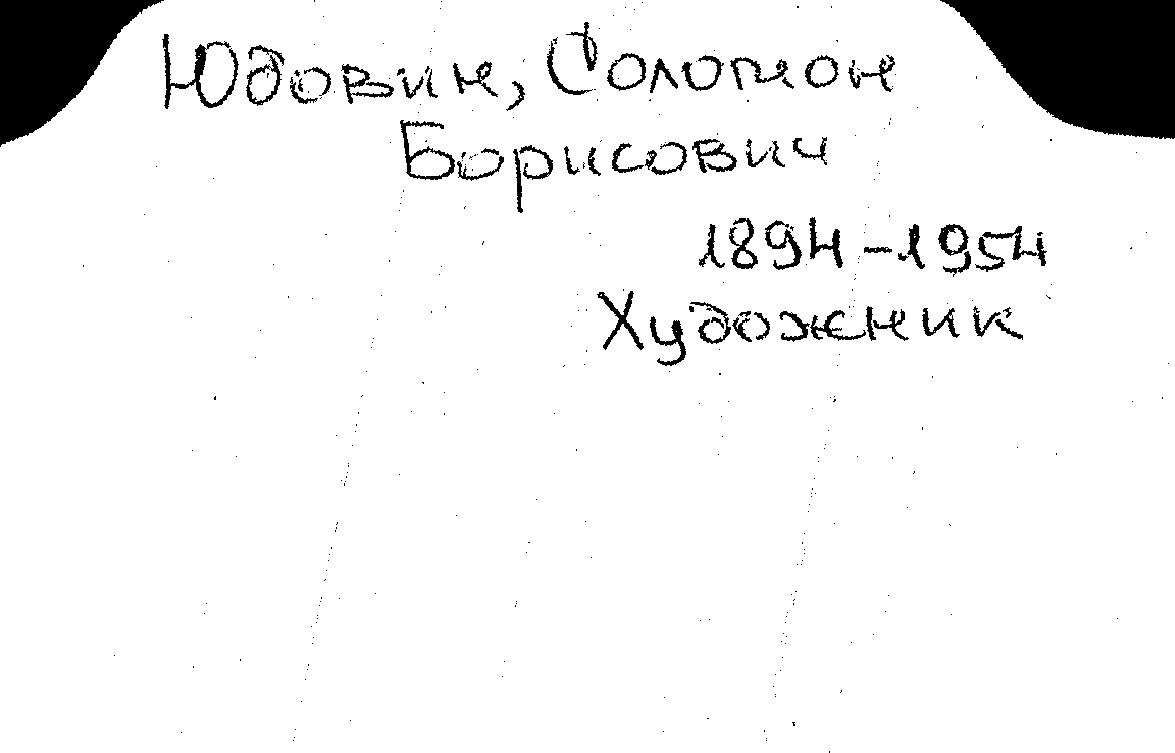 Юдовин, Соломон
Борисович
1894-1954
Художник